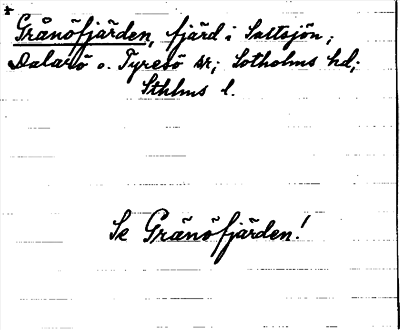 Grånöfjärden, fjärd i Saltsjön;
Dalarö o. Tyresö sr; Sotholms hd;
Sthlms l.
Se Gränöfjärden!